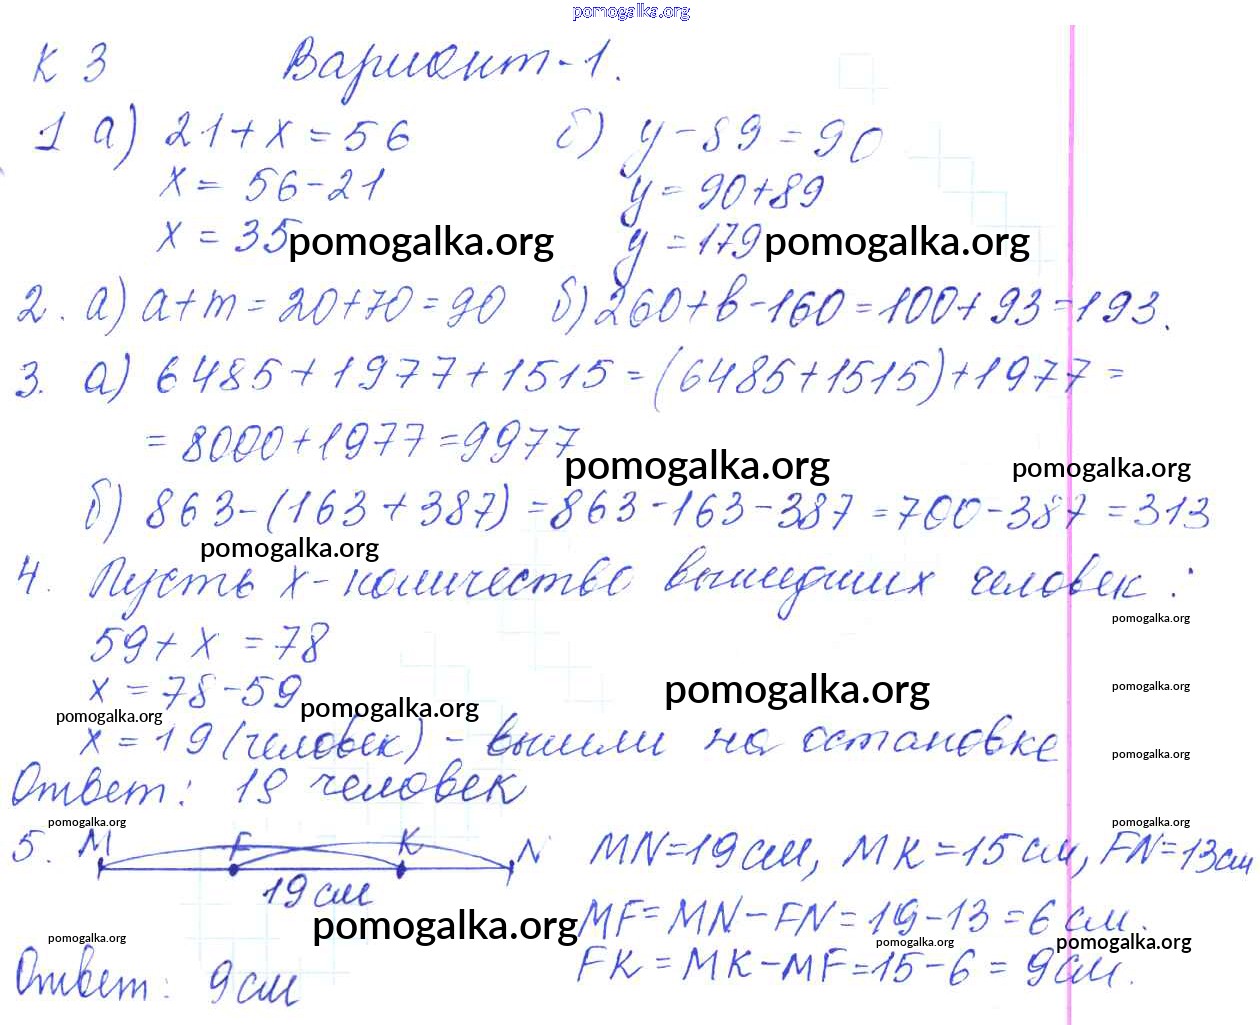 pomogalka.org
К 3 Вариант-1.
1 а) 21+x=56 б) y-89=90
x= 56-21 y=90+89
x = 35 pomogalka.org y =179 pomogalka.org
2. а) a+m=20+70=90 б) 260+b-160=100+93=193.
3. а) 6485+1977+1515=(6485+1515)+1977=
= 8000+1977=9977
pomogalka.org pomogalka.org
б) 863-(163+387)=863-163-387=700-387=313
pomogalka.org
4. Пусть x-количество вышедших человек:
pomogalka.org
59+x=78
x=78-59
pomogalka.org pomogalka.org pomogalka.org pomogalka.org
x=19 (человек) - вышли на остановке
pomogalka.org
Ответ: 19 человек
pomogalka.org pomogalka.org
5. M F K N MN=19см, MK=15см, FN=13см
19 см
pomogalka.org MF=MN-FN=19-13=6 см.
pomogalka.org pomogalka.org pomogalka.org
FK=MK-MF=15-6=9см.
Ответ: 9см